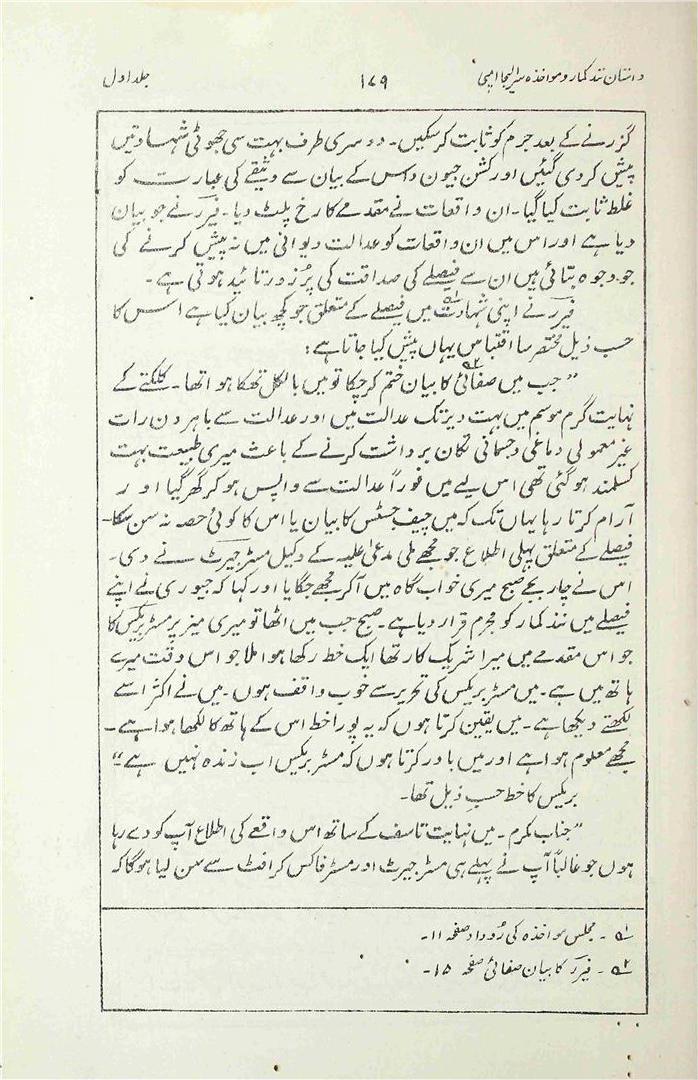 داستان نند کمار و مواخذہ سر الیجا امپی ۱۷۹ جلد اول
گزرنے کے بعد جرم کو ثابت کر سکیں۔ دوسری طرف بہت سی جھوٹی شہادتیں
پیش کر دی گئیں اور کشن جیون داس کے بیان سے وثیقے کی عبارت کو
غلط ثابت کیا گیا۔ ان واقعات نے مقدمے کا رخ پلٹ دیا۔ فیرر نے جو بیان
دیا ہے اور اس میں ان واقعات کو عدالت دیوانی میں نہ پیش کرنے کی
جو وجوہ بتائی ہیں ان سے فیصلے کی صداقت کی پُر زور تائید ہوتی ہے۔
فیرر نے اپنی شہادت۱؎ میں فیصلے کے متعلق جو کچھ بیان کیا ہے اس کا
حسب ذیل مختصر سا اقتباس یہاں پیش کیا جاتا ہے:
”جب میں صفائی۲؎ کا بیان ختم کر چکا تو میں بالکل تھکا ہوا تھا۔ کلکتے کے
نہایت گرم موسم میں بہت دیر تک عدالت میں اور عدالت سے باہر دن رات
غیر معمولی دماغی و جسمانی تکان برداشت کرنے کے باعث میری طبیعت بہت
کسلمند ہو گئی تھی اس لیے میں فوراً عدالت سے واپس ہو کر گھر گیا اور
آرام کرتا رہا یہاں تک کہ میں چیف جسٹس کا بیان یا اس کا کوئی حصہ نہ سن سکا۔
فیصلے کے متعلق پہلی اطلاع جو مجھے ملی مدعیٰ علیہ کے وکیل مسٹر جیرٹ نے دی۔
اس نے چار بجے صبح میری خواب گاہ میں آ کر مجھے جگایا اور کہا کہ جیوری نے اپنے
فیصلے میں نند کمار کو مجرم قرار دیا ہے۔ صبح جب میں اٹھا تو میری میز پر مسٹر بریکس کا
جو اس مقدمے میں میرا شریک کار تھا ایک خط رکھا ہوا ملا جو اس وقت میرے
ہاتھ میں ہے۔ میں مسٹر بریکس کی تحریر سے خوب واقف ہوں۔ میں نے اکثر اسے
لکھتے دیکھا ہے۔ میں یقین کرتا ہوں کہ یہ پورا خط اس کے ہاتھ کا لکھا ہوا ہے۔
مجھے معلوم ہوا ہے اور میں باور کرتا ہوں کہ مسٹر بریکس اب زندہ نہیں ہے“۔
بریکس کا خط حسب ذیل تھا۔
”جناب مکرم۔ میں نہایت تاسف کے ساتھ اس واقعے کی اطلاع آپ کو دے رہا
ہوں جو غالباً آپ نے پہلے ہی مسٹر جیرٹ اور مسٹر فاکس کرافٹ سے سن لیا ہو گا کہ
۱؎ ۔ مجلس مواخذہ کی رُوداد صفحہ ۱۱۔
۲؎ ۔ فیرر کا بیان صفائی صفحہ ۱۵۔